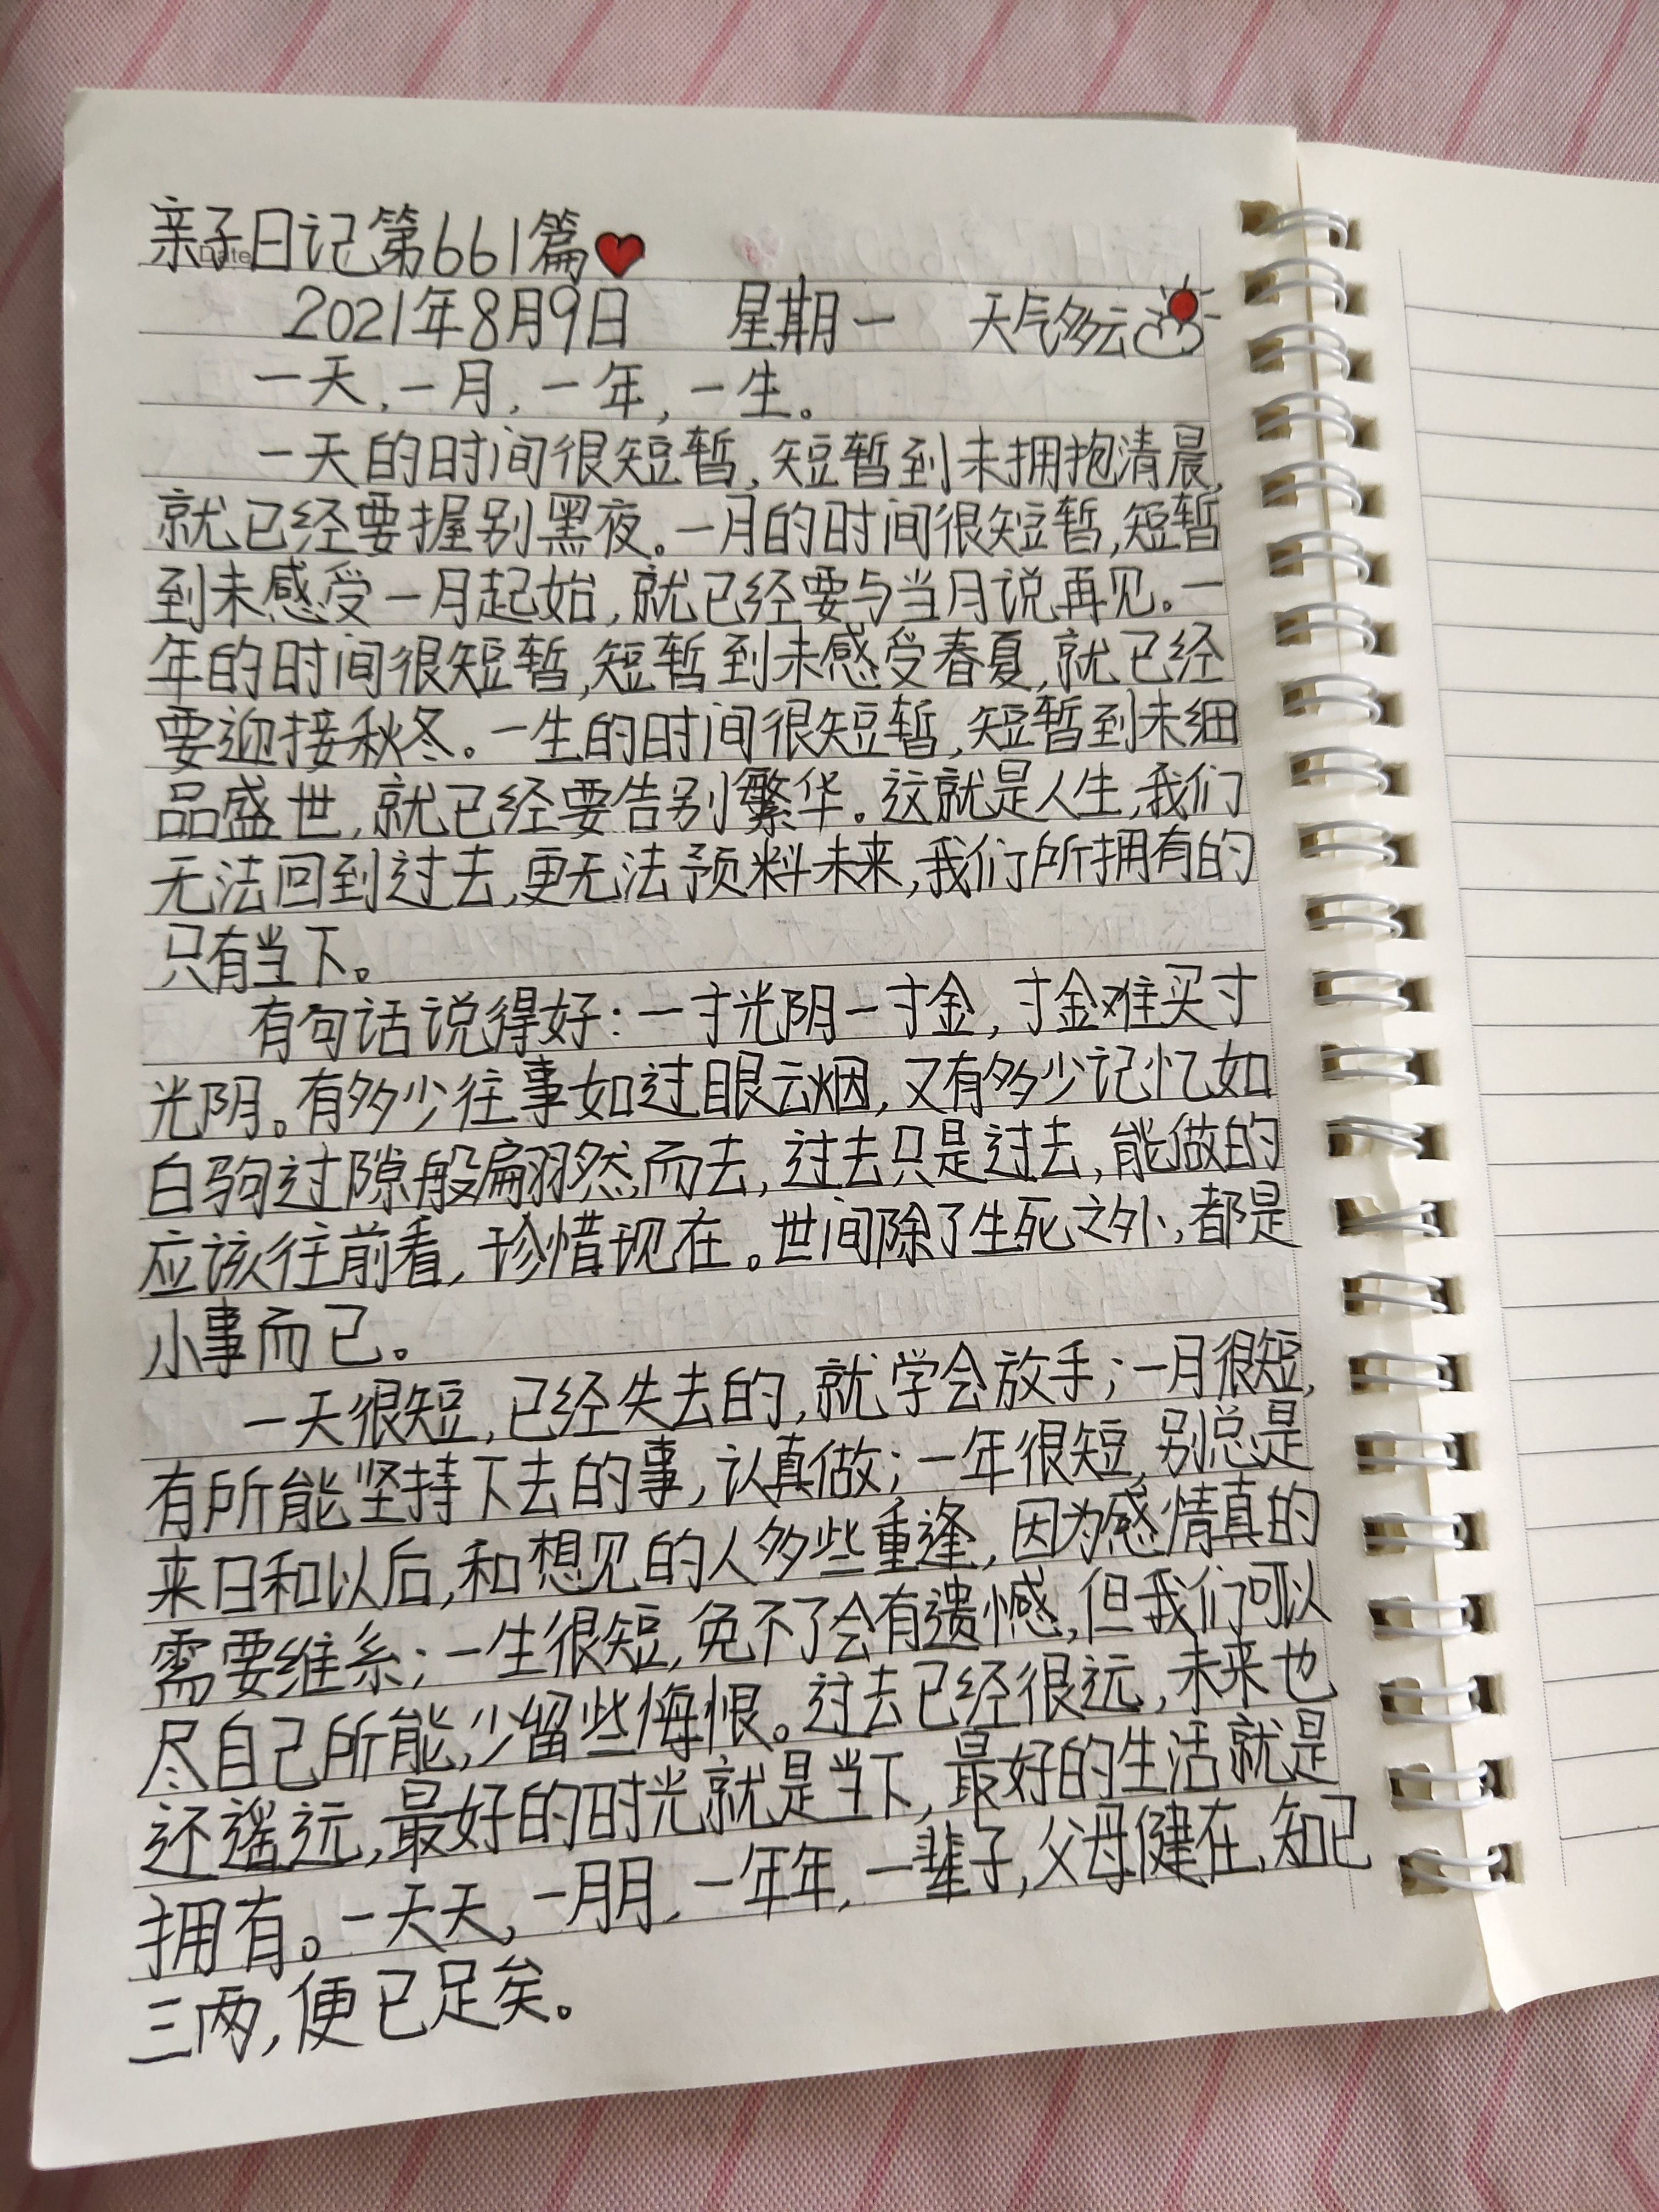 亲子日记第661篇
Date
2021年8月9日 星期一 天气多云
一天,一月,一年,一生。
一天的时间很短暂,短暂到未拥抱清晨,
就已经要握别黑夜。一月的时间很短暂,短暂
到未感受一月起始,就已经要与当月说再见。一
年的时间很短暂,短暂到未感受春夏,就已经
要迎接秋冬。一生的时间很短暂,短暂到未细
品盛世,就已经要告别繁华。这就是人生,我们
无法回到过去,更无法预料未来,我们所拥有的
只有当下。
有句话说得好:一寸光阴一寸金,寸金难买寸
光阴。有多少往事如过眼云烟,又有多少记忆如
白驹过隙般翩然而去,过去只是过去,能做的
应该往前看,珍惜现在。世间除了生死之外,都是
小事而已。
一天很短,已经失去的,就学会放手;一月很短,
有所能坚持下去的事,认真做;一年很短,别总是
来日和以后,和想见的人多些重逢,因为感情真的
需要维系;一生很短,免不了会有遗憾,但我们可以
尽自己所能,少留些悔恨。过去已经很远,未来也
还遥远,最好的时光就是当下,最好的生活就是
拥有。一天天,一月月,一年年,一辈子,父母健在,知己
三两,便已足矣。